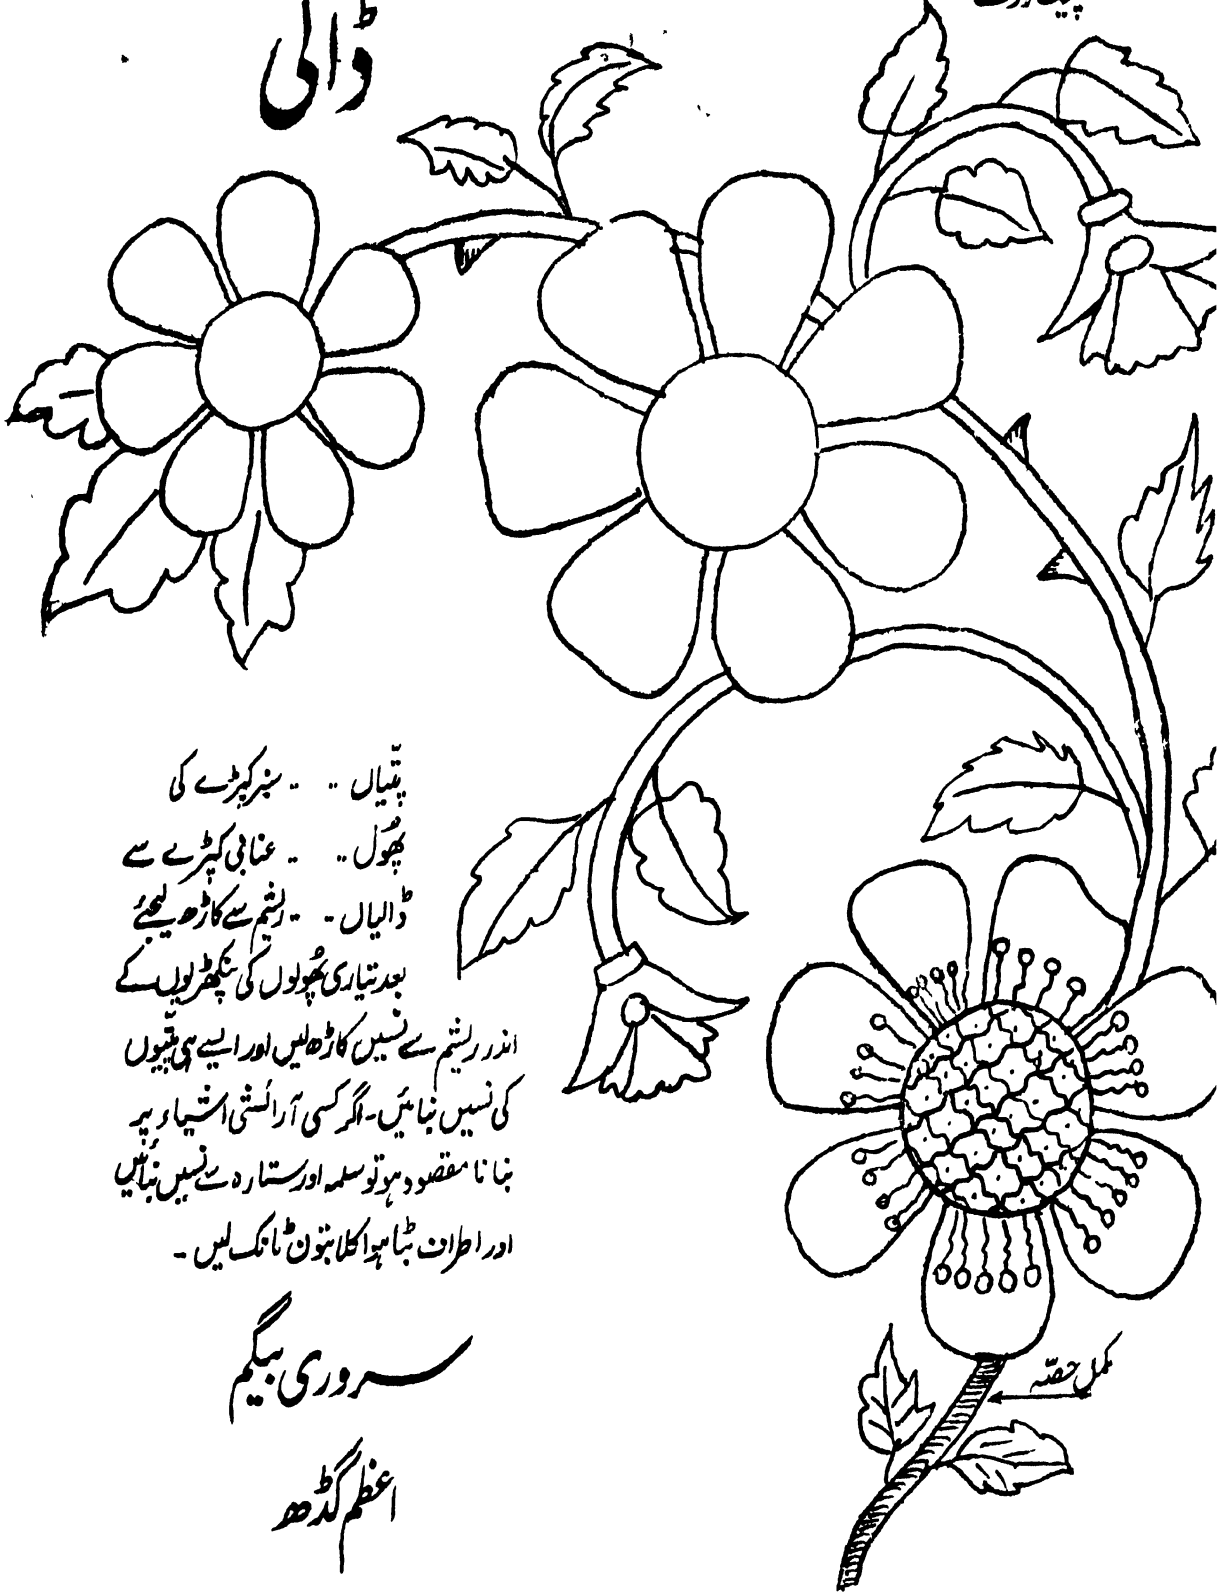 ڈالی
پتّیاں .. .. سبز کپڑے کی
پھُول .. .. عنابی کپڑے سے
ڈالیاں .. .. ریشم سے کاڑھ لیجئے
بعد تیاری پھُولوں کی پنکھڑیوں کے
اندر ریشم سے نسیں کاڑھ لیں اور ایسے ہی پتّیوں
کی نسیں بنائیں۔ اگر کسی آرائشی اشیاء پر
بنانا مقصود ہو تو سلمہ اور ستارہ سے نسیں بنائیں
اور اطراف بٹا ہوا کلابتون ٹانک لیں۔
سروری بیگم
اعظم گڈھ
مکمل حصّہ